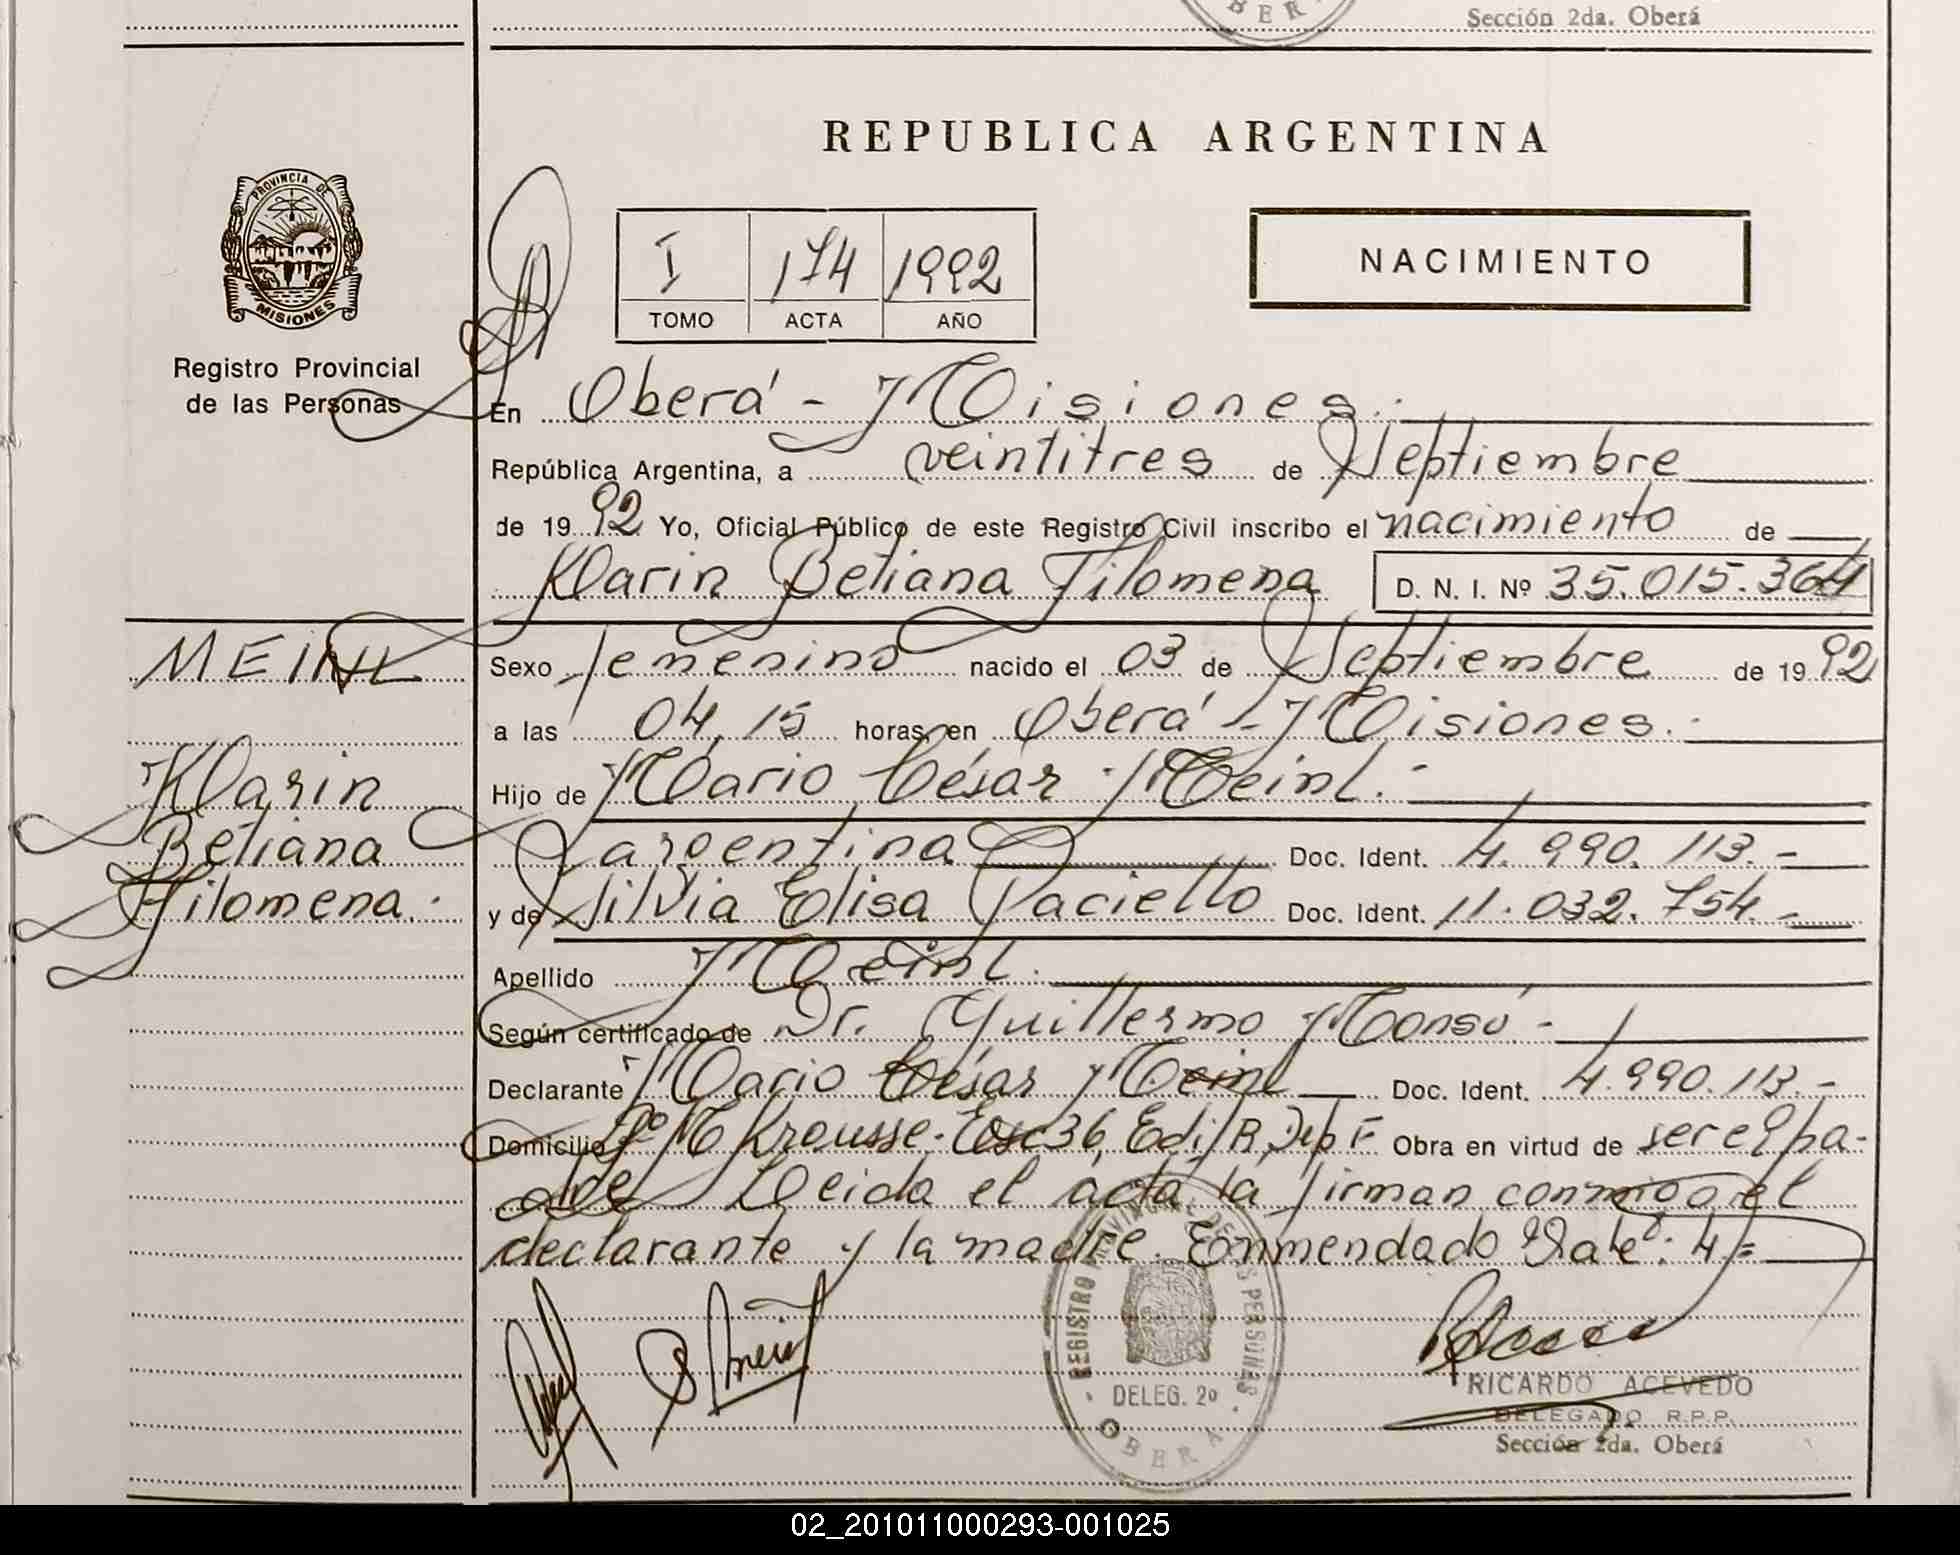 OBER
Sección 2da. Oberá
REPUBLICA ARGENTINA
PROVINCIA DE
MISIONES
Registro Provincial
de las Personas
I 174 1992
TOMO ACTA AÑO
NACIMIENTO
En Oberá - Misiones.
República Argentina, a veintitres de Septiembre
de 1992 Yo, Oficial Público de este Registro Civil inscribo el nacimiento de
Karin Betiana Filomena D. N. I. Nº 35.015.364
MEINL
Karin
Betiana
Filomena.
Sexo femenino nacido el 03 de Septiembre de 1992
a las 04,15 horas, en Oberá - Misiones.
Hijo de Mario César Meinl.
argentina Doc. Ident. 4.990.113.-
y de Silvia Elisa Paciello Doc. Ident. 11.032.754.-
Apellido Meinl.
Según certificado de Dr. Guillermo Monsú -
Declarante Mario César Meinl Doc. Ident. 4.990.113.-
Domicilio Bº M Krausse. Esc 36, Edif R, Dep F Obra en virtud de ser el pa-
dre Leida el acta la firman conmigo el
declarante y la madre. Enmendado "Vale": 4.=
REGISTRO PROVINCIAL DE LAS PERSONAS
DELEG. 2º
OBERA
RICARDO ACEVEDO
DELEGADO R.P.P.
Sección 2da. Oberá
02_201011000293-001025